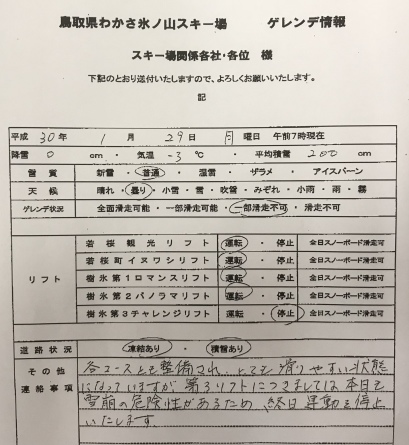 鳥取県わかさ氷ノ山スキー場 ゲレンデ情報
スキー場関係各社・各位 様
下記のとおり送付いたしますので、よろしくお願いいたします。
記
平成 30 年 1 月 29 日 月 曜日 午前7時現在
降雪 0 cm ・ 気温 -3 ℃ ・ 平均積雪 200 cm
雪質 新雪 ・ 普通 ・ 湿雪 ・ ザラメ ・ アイスバーン
天候 晴れ ・ 曇り ・ 小雪 ・ 雪 ・ 吹雪 ・ みぞれ ・ 小雨 ・ 雨 ・ 霧
ゲレンデ状況 全面滑走可能 ・ 一部滑走可能 ・ 一部滑走不可 ・ 滑走不可
リフト
若桜観光リフト 運転 ・ 停止 全日スノーボード滑走可
若桜町イヌワシリフト 運転 ・ 停止 全日スノーボード滑走可
樹氷第1ロマンスリフト 運転 ・ 停止 全日スノーボード滑走可
樹氷第2パノラマリフト 運転 ・ 停止 全日スノーボード滑走可
樹氷第3チャレンジリフト 運転 ・ 停止 全日スノーボード滑走可
道路状況 凍結あり ・ 積雪あり
その他
連絡事項
各コースとも整備され、とても滑りやすい状態
になっていますが第3リフトにつきましては本日も
雪崩の危険性があるため、終日運動を停止
いたします。